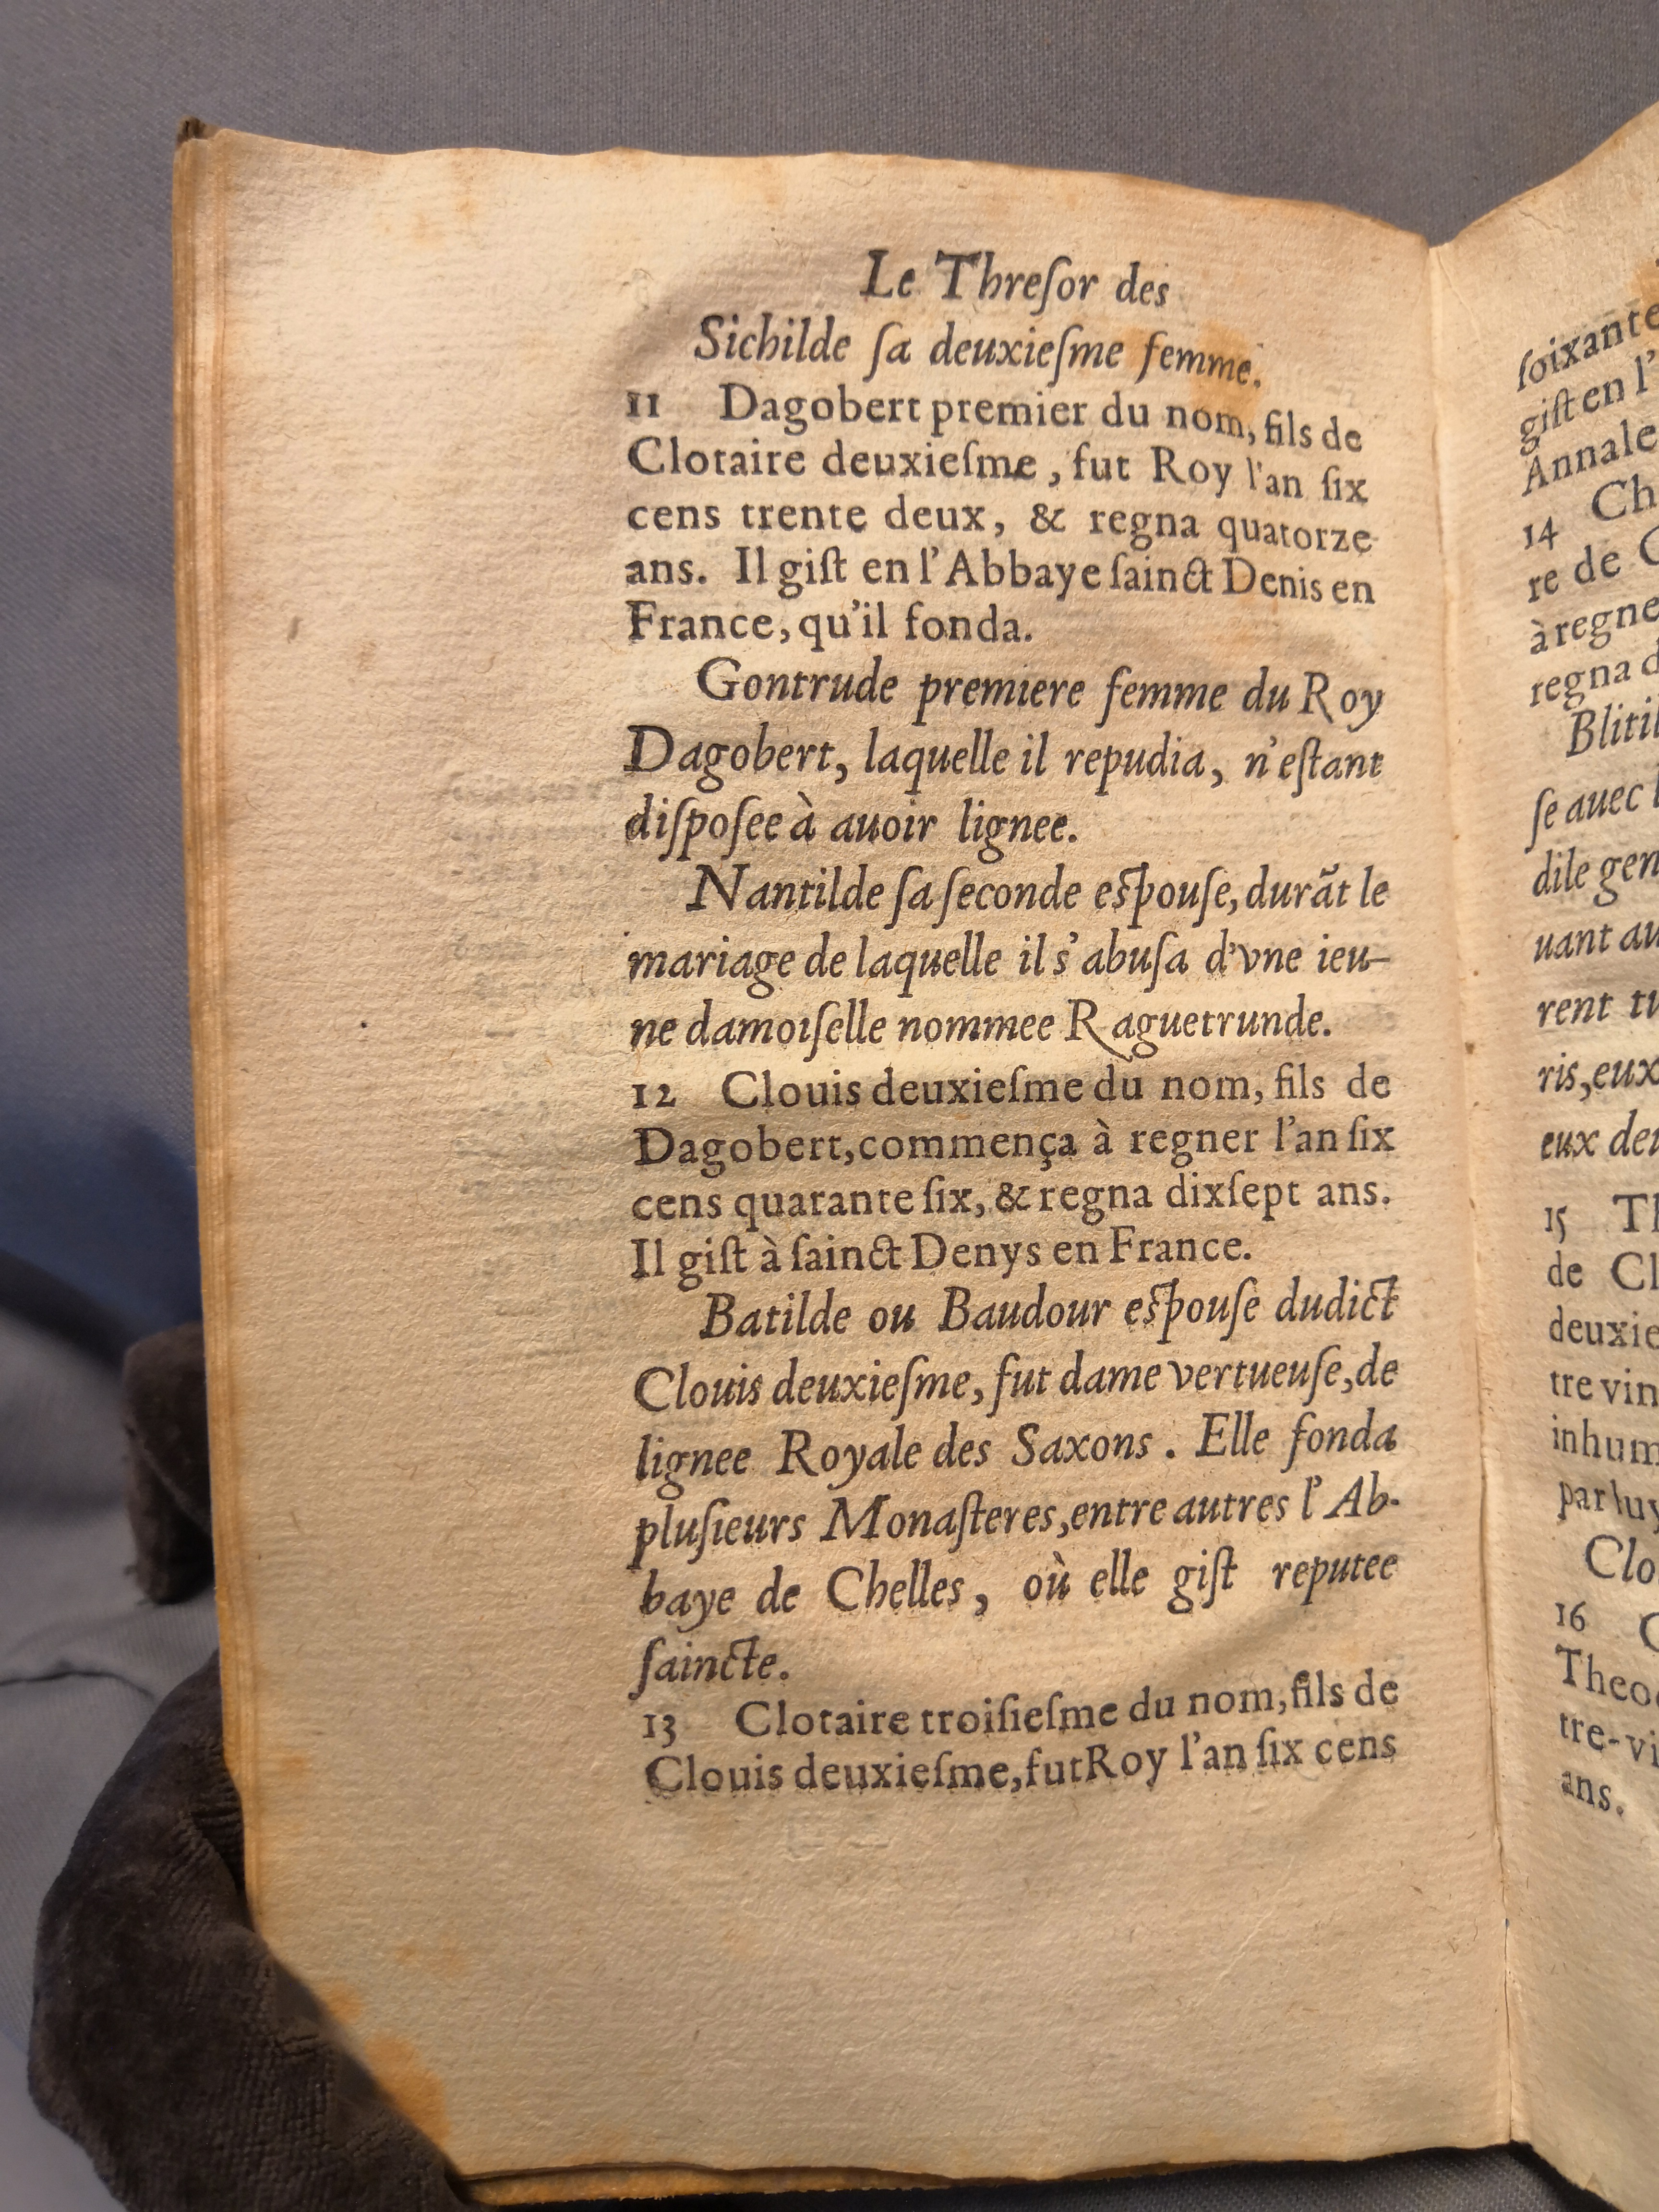 Le Threſor des
Sichilde ſa deuxieſme femme.
11 Dagobert premier du nom, fils de
Clotaire deuxieſme, fut Roy l'an ſix
cens trente deux, & regna quatorze
ans. Il giſt en l'Abbaye ſainct Denis en
France, qu'il fonda.
Gontrude premiere femme du Roy
Dagobert, laquelle il repudia, n'eſtant
diſpoſee à auoir lignee.
Nantilde ſa ſeconde eſpouſe, durãt le
mariage de laquelle il s'abuſa d'vne ieu-
ne damoiſelle nommee Raguetrunde.
12 Clouis deuxieſme du nom, fils de
Dagobert, commença à regner l'an ſix
cens quarante ſix, & regna dixſept ans.
Il giſt à ſainct Denys en France.
Batilde ou Baudour eſpouſe dudict
Clouis deuxieſme, fut dame vertueuſe, de
lignee Royale des Saxons. Elle fonda
pluſieurs Monaſteres, entre autres l'Ab-
baye de Chelles, où elle giſt reputee
ſaincte.
13 Clotaire troiſieſme du nom, fils de
Clouis deuxieſme, fut Roy l'an ſix cens
ſoixante
giſt en l'
Annale
14 Ch
re de C
à regne
regna d
Blitil
ſe auec l
dile gen
uant au
rent tu
ris, eux
eux deu
15 Th
de Cl
deuxie
tre vin
inhum
par luy
Clo
16 C
Theo
tre-vi
ans.